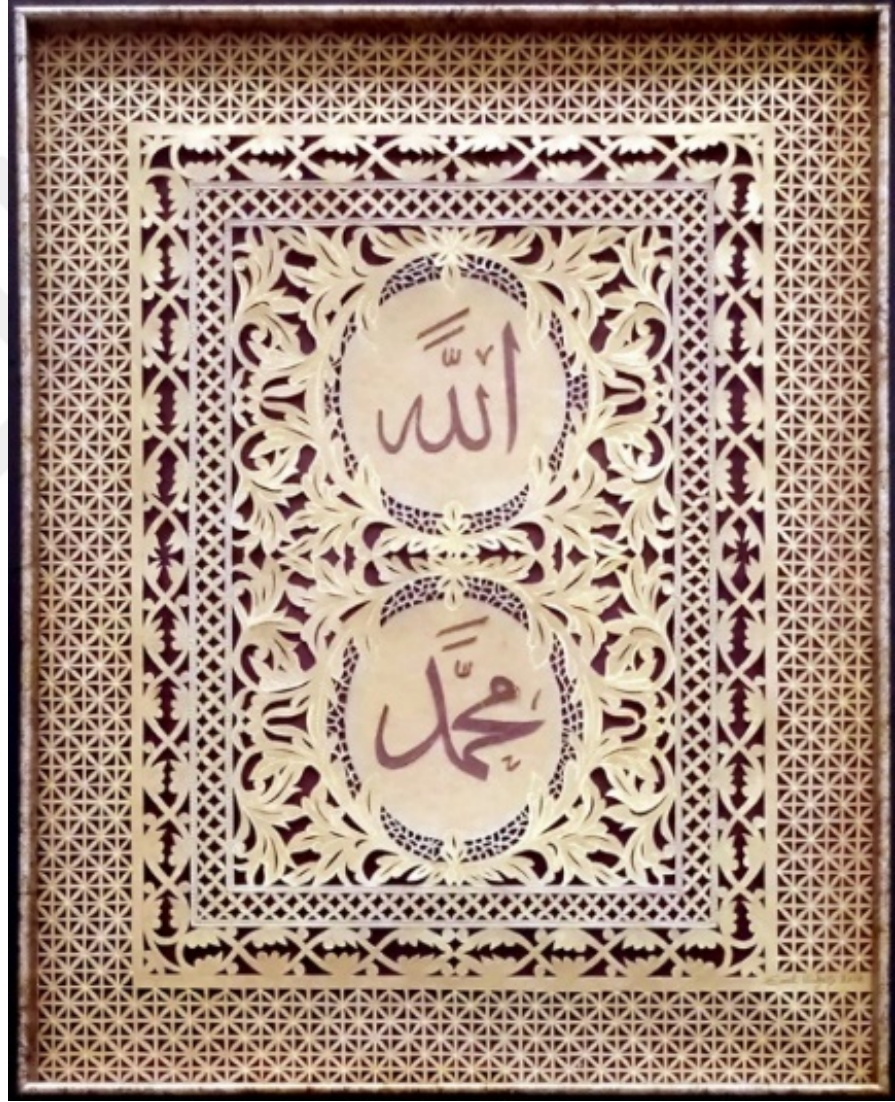 اللّٰه
محمّد